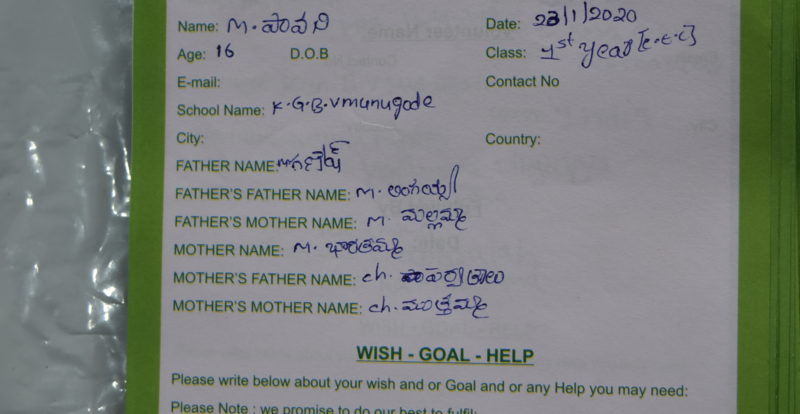 Name: M. పావని Date: 23/1/2020
Age: 16 D.O.B Class: 1st year [C.E.C]
E-mail: Contact No
School Name: K.G.B.V munugode
City: Country:
FATHER NAME: M. గణేష్
FATHER'S FATHER NAME: M.
FATHER'S MOTHER NAME: M. మల్లమ్మ
MOTHER NAME: M. భారతమ్మ
MOTHER'S FATHER NAME: ch.
MOTHER'S MOTHER NAME: ch. ముత్తమ్మ
WISH - GOAL - HELP
Please write below about your wish and or Goal and or any Help you may need:
Please Note : we promise to do our best to fulfil